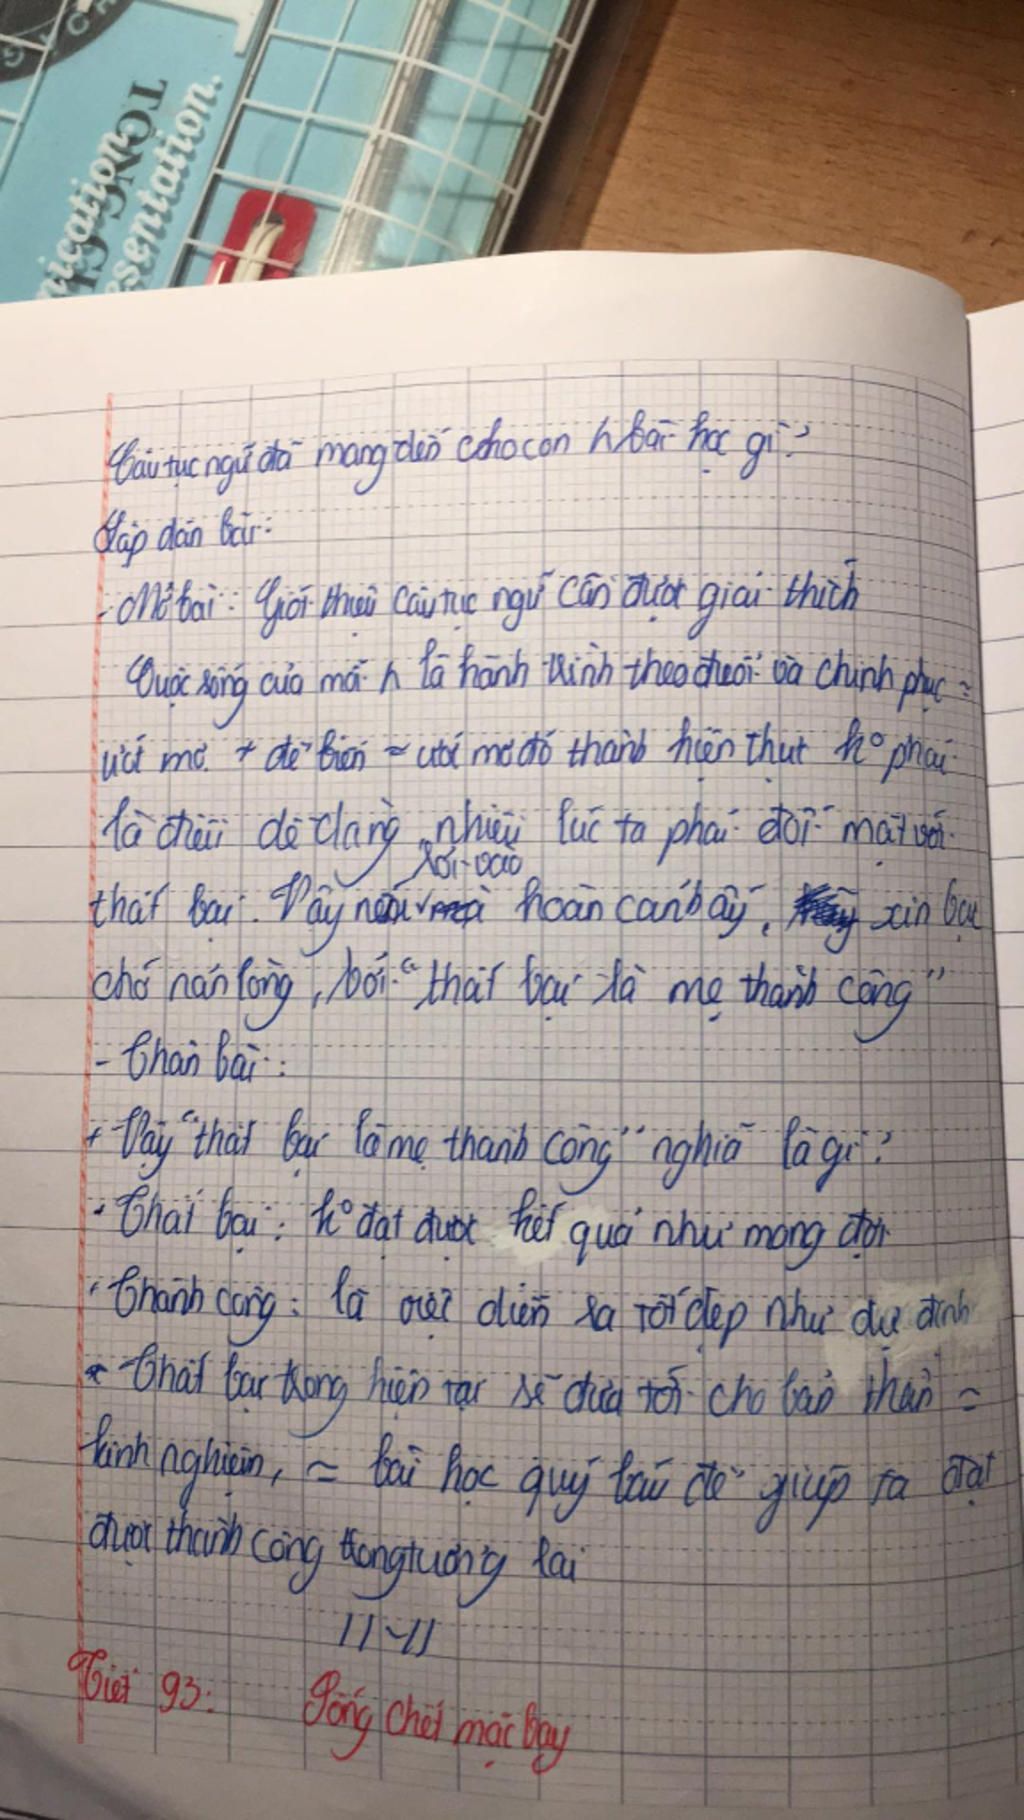 TONG
nication
esentation.
Câu tục ngữ đã mang đến cho con h bài học gì?
Lập dàn bài:
- Mở bài: Giới thiệu câu tục ngữ cần được giải thích
Cuộc sống của mỗi h là hành trình theo đuổi và chinh phục ~
ước mơ + để biến ~ ước mơ đó thành hiện thực ko phải
là điều dễ dàng, nhiều lúc ta phải đối mặt với
rơi vào
thất bại. Vậy nếu hoàn cảnh ấy, xin bạn
chớ nản lòng, bởi "thất bại là mẹ thành công"
- Thân bài:
+ Vậy "thất bại là mẹ thành công" nghĩa là gì?
• Thất bại: ko đạt được kết quả như mong đợi
• Thành công: là việc diễn ra tốt đẹp như dự định
* Thất bại trong hiện tại sẽ đưa tới cho bản thân ~
kinh nghiệm, ~ bài học quý báu để giúp ta đạt
được thành công trong tương lai
11~11
Tiết 93: Sống chết mặc bay